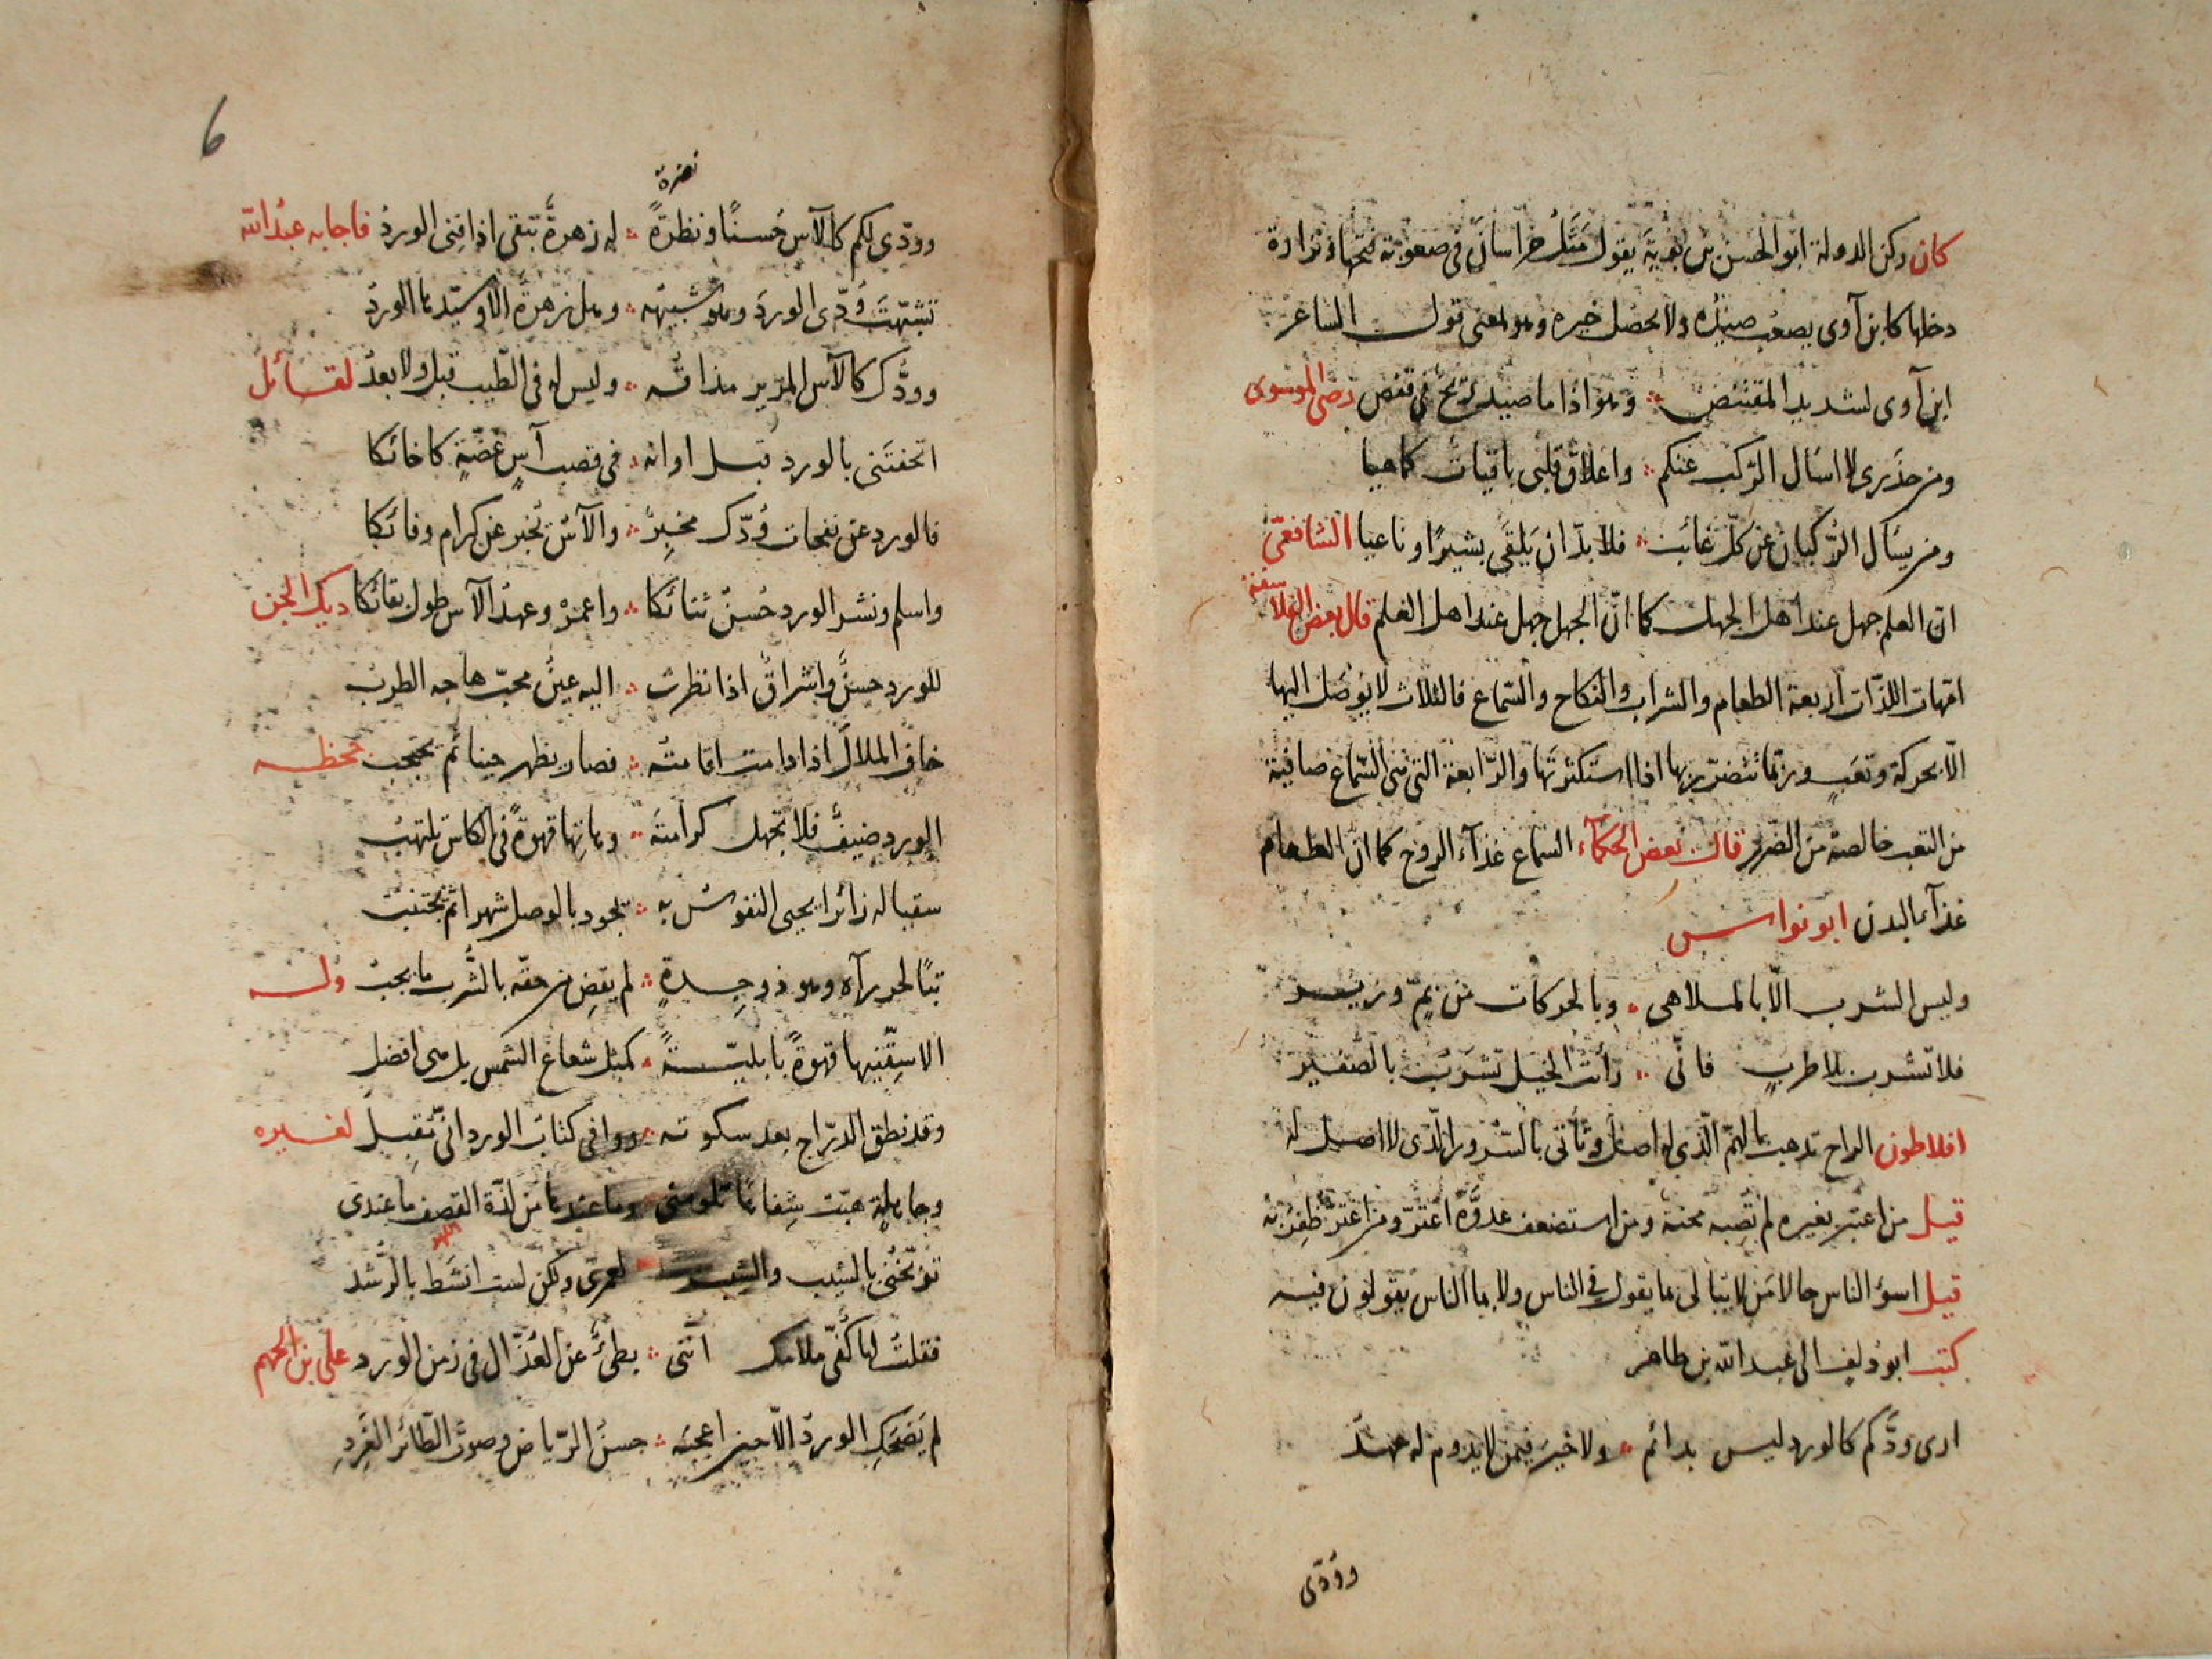 كان ركن الدولة ابو الحسن بن بويه يقول مثل خراسان فى صعوبة فتحها ونزارة
دخلها كابن آوى يصعب صيده ولا يحصل خيره وهو معنى قول الشاعر
ابن آوى لشديد المقتنص وهو اذا ما صيد ريح فى قفص رضى الموسوى
ومن حذرى لا اسأل الركب عنكم واعلاق قلبى باقيات كما هيا
ومن يسأل الركبان عن كل غائب فلا بدّ ان يلقى بشيرًا وناعيا الشافعىّ
انّ العلم جهل عند اهل الجهل كما انّ الجهل جهل عند اهل العلم قال بعض الفلاسفة
امّهات اللذّات اربعة الطعام والشراب والنكاح والسّماع فالثلاث لا يوصل اليها
الّا بحركة وتعب وربّما تتضرّر بها اذا استكثرتها والرّابعة التى هى السّماع صافية
من التعب خالصة من الضرر قال بعض الحكمآء السماع غذآء الروح كما ان الطعام
غذآء البدن ابو نواس
وليس الشرب الّا بالملاهى وبالحركات من بمّ وزير
فلا تشرب بلا طرب فانّى رأيت الخيل تشرب بالصّفير
افلاطون الراح تذهب بالهمّ الّذى له اصل وتأتى بالسّرور الّذى لا اصل له
قيل من اعتبر بغيره لم تصبه محنة ومن استضعف عدوّه اغترّ ومن اغترّ ظفر به
قيل اسوء الناس حالا من لا يبالى ما يقول فى الناس ولا بما الناس يقولون فيه
كتب ابو دلف الى عبد الله بن طاهر
ارى ودّكم كالورد ليس بدائم ولا خير فيمن لا يدوم له عهد
وودّى
6
نضرة
وودّى لكم كالآس حسنًا ونظرةً له زهرة تبقى اذا فنى الورد فاجابه عبد الله
تشبّهت ودّى الورد وهو شبيهه وهل زهرة الا وسيّدها الورد
وودّك كالآس المرير مذاقه وليس له فى الطيب قبل ولا بعد لقائل
اتحفتنى بالورد قبل اوانه فى قضب آس غضّة كاخائكا
فالورد عن نفحات ودّك مخبر والآس تخبر عن كرام وفائكا
واسلم ونشر الورد حسن ثنائكا واعمر وعهد الآس طول بقائكا ديك الجن
للورد حسن واشراق اذا نظرت اليه عين محبّ هاجه الطرب
خاف الملال اذا دامت اقامته فصار يظهر حينا ثم يحتجب جحظه
الورد ضيف فلا تجهل كرامته وهاتها قهوة فى الكاس تلتهب
سقيا له زائرا يحيى النفوس به يجود بالوصل شهرا ثم يجتنب
تبًا لحر رآه وهو ذو جدة لم يقض من حقّه بالشّرب ما يجب وله
الا سقّنيها قهوةً بابليّةً كمثل شعاع الشمس بل هى افضل
وقد نطق الدرّاج بعد سكوته ووافى كتاب الورد انّى مقبل لغيره
وجاهلة هبّت شفاها تلومنى وما عندها من لذّة القصف ما عندى
توبّخنى بالشيب والشيب لعمرى ولكن لست انشط بالرّشد
فقلت لها كفّى ملامك اننى بطئ عن العذّال فى زمن الورد على بن الجهم
لم يضحك الورد الّا حين اعجبه حسن الرّياض وصوت الطائر الغرد